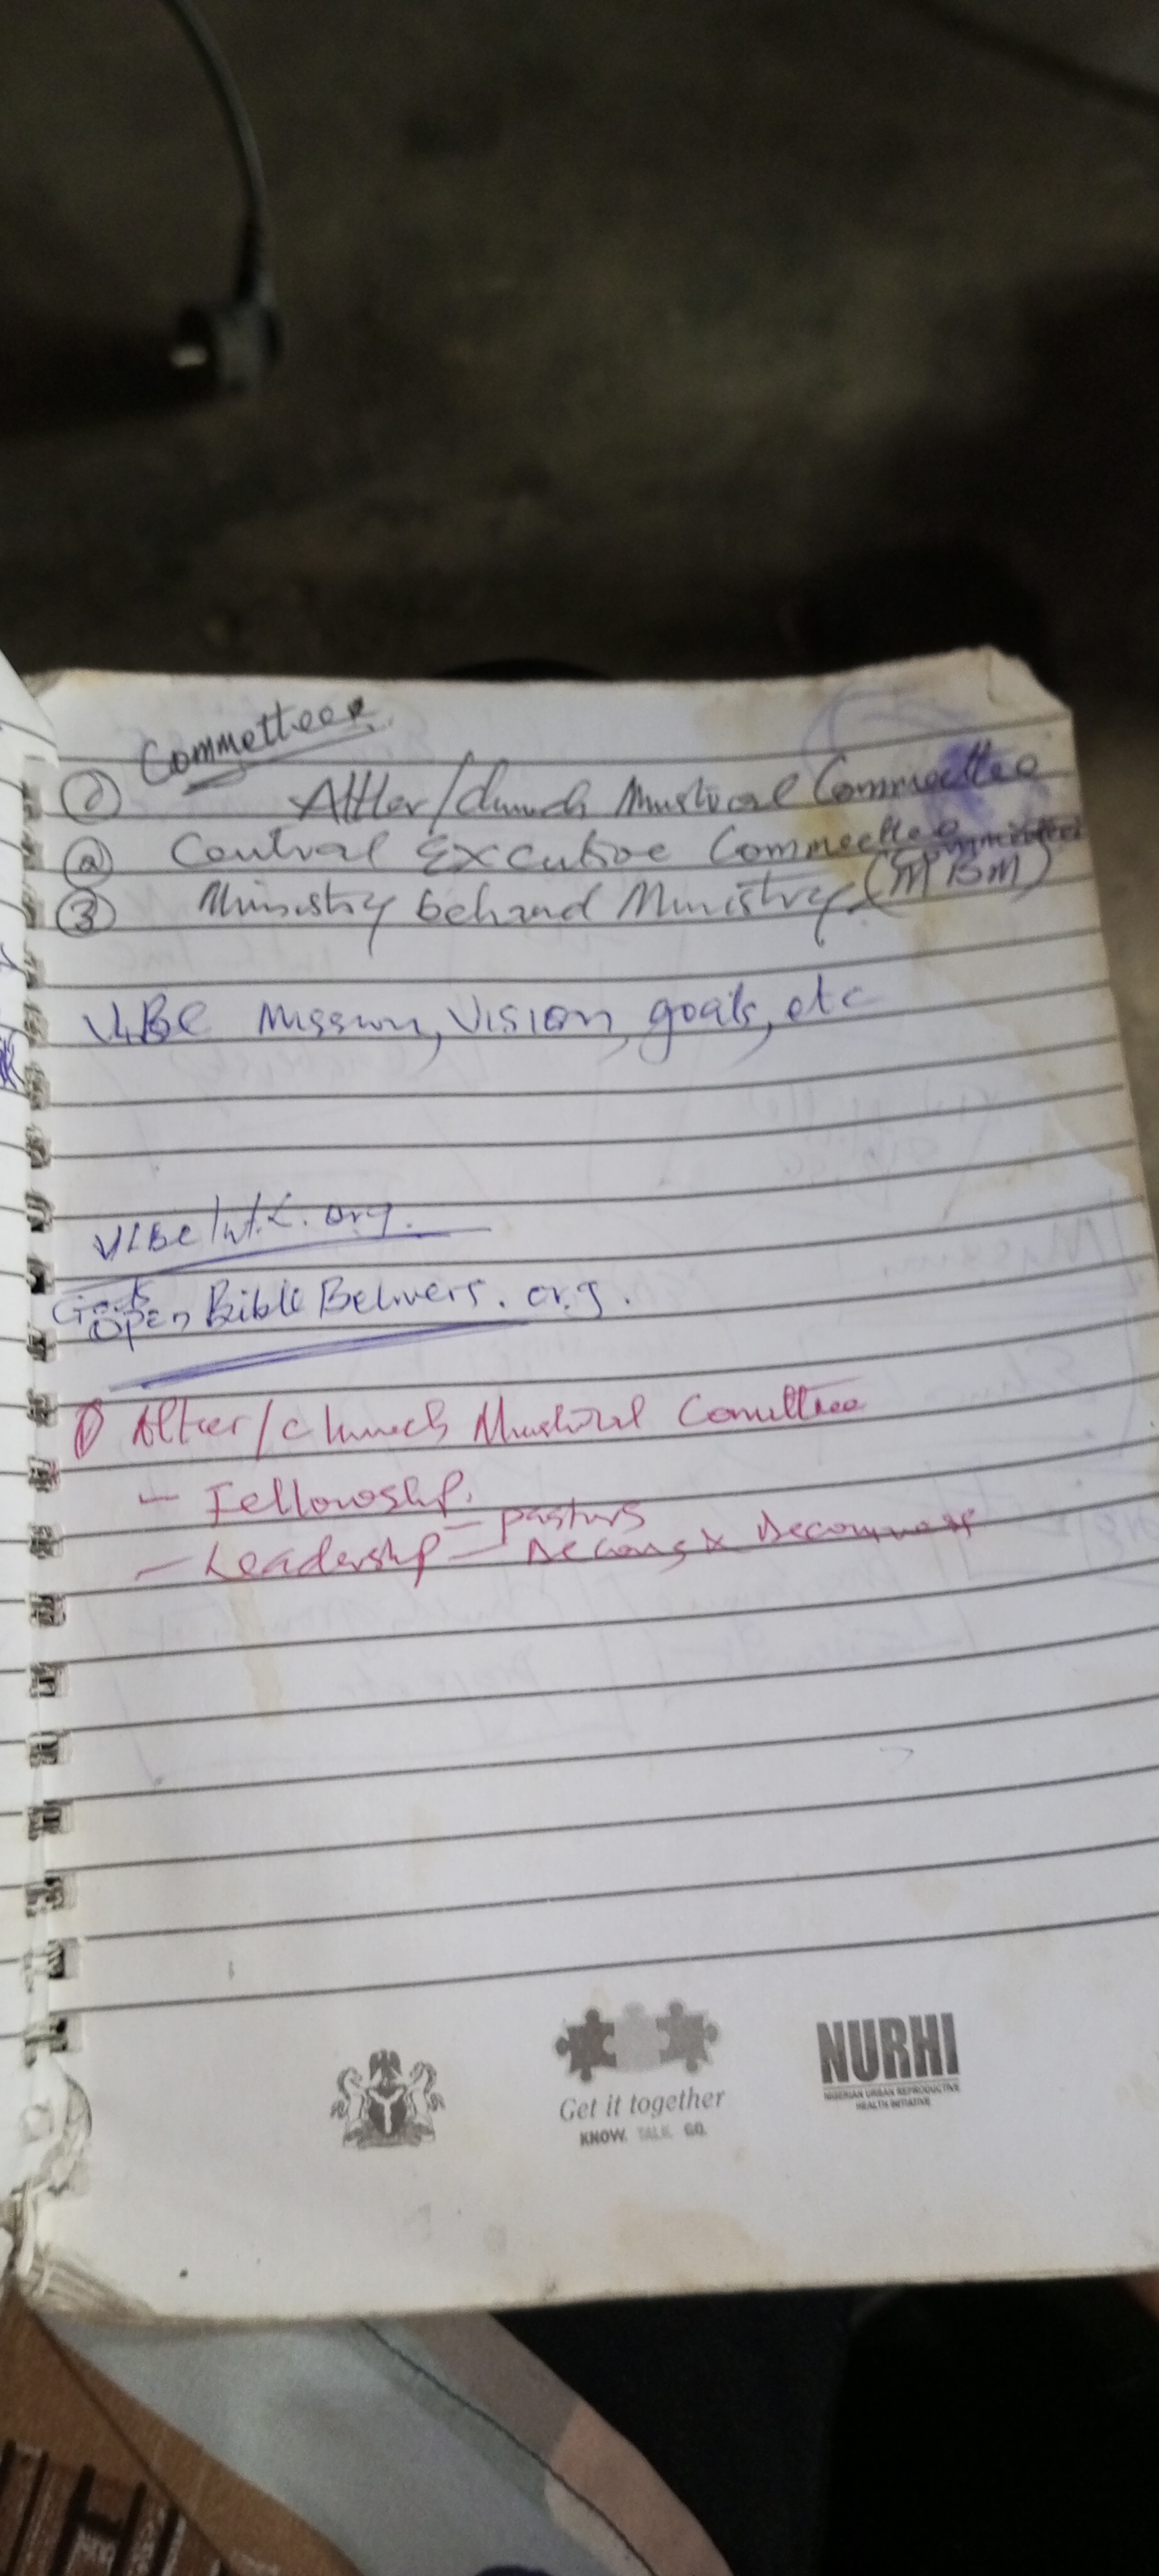 Commetteer
① Altter/church Mustural Commettee
② Central Executive Commettee
③ Ministry behind Ministry (MBM)
Mission, Vision, goals, etc
Open Bible Belivers.org.
① Alter/church Comittee
- Fellowship.
- Leadership - pastors
Decons &
Get it together
KNOW. TALK. GO.
NURHI
NIGERIAN URBAN REPRODUCTIVE
HEALTH INITIATIVE